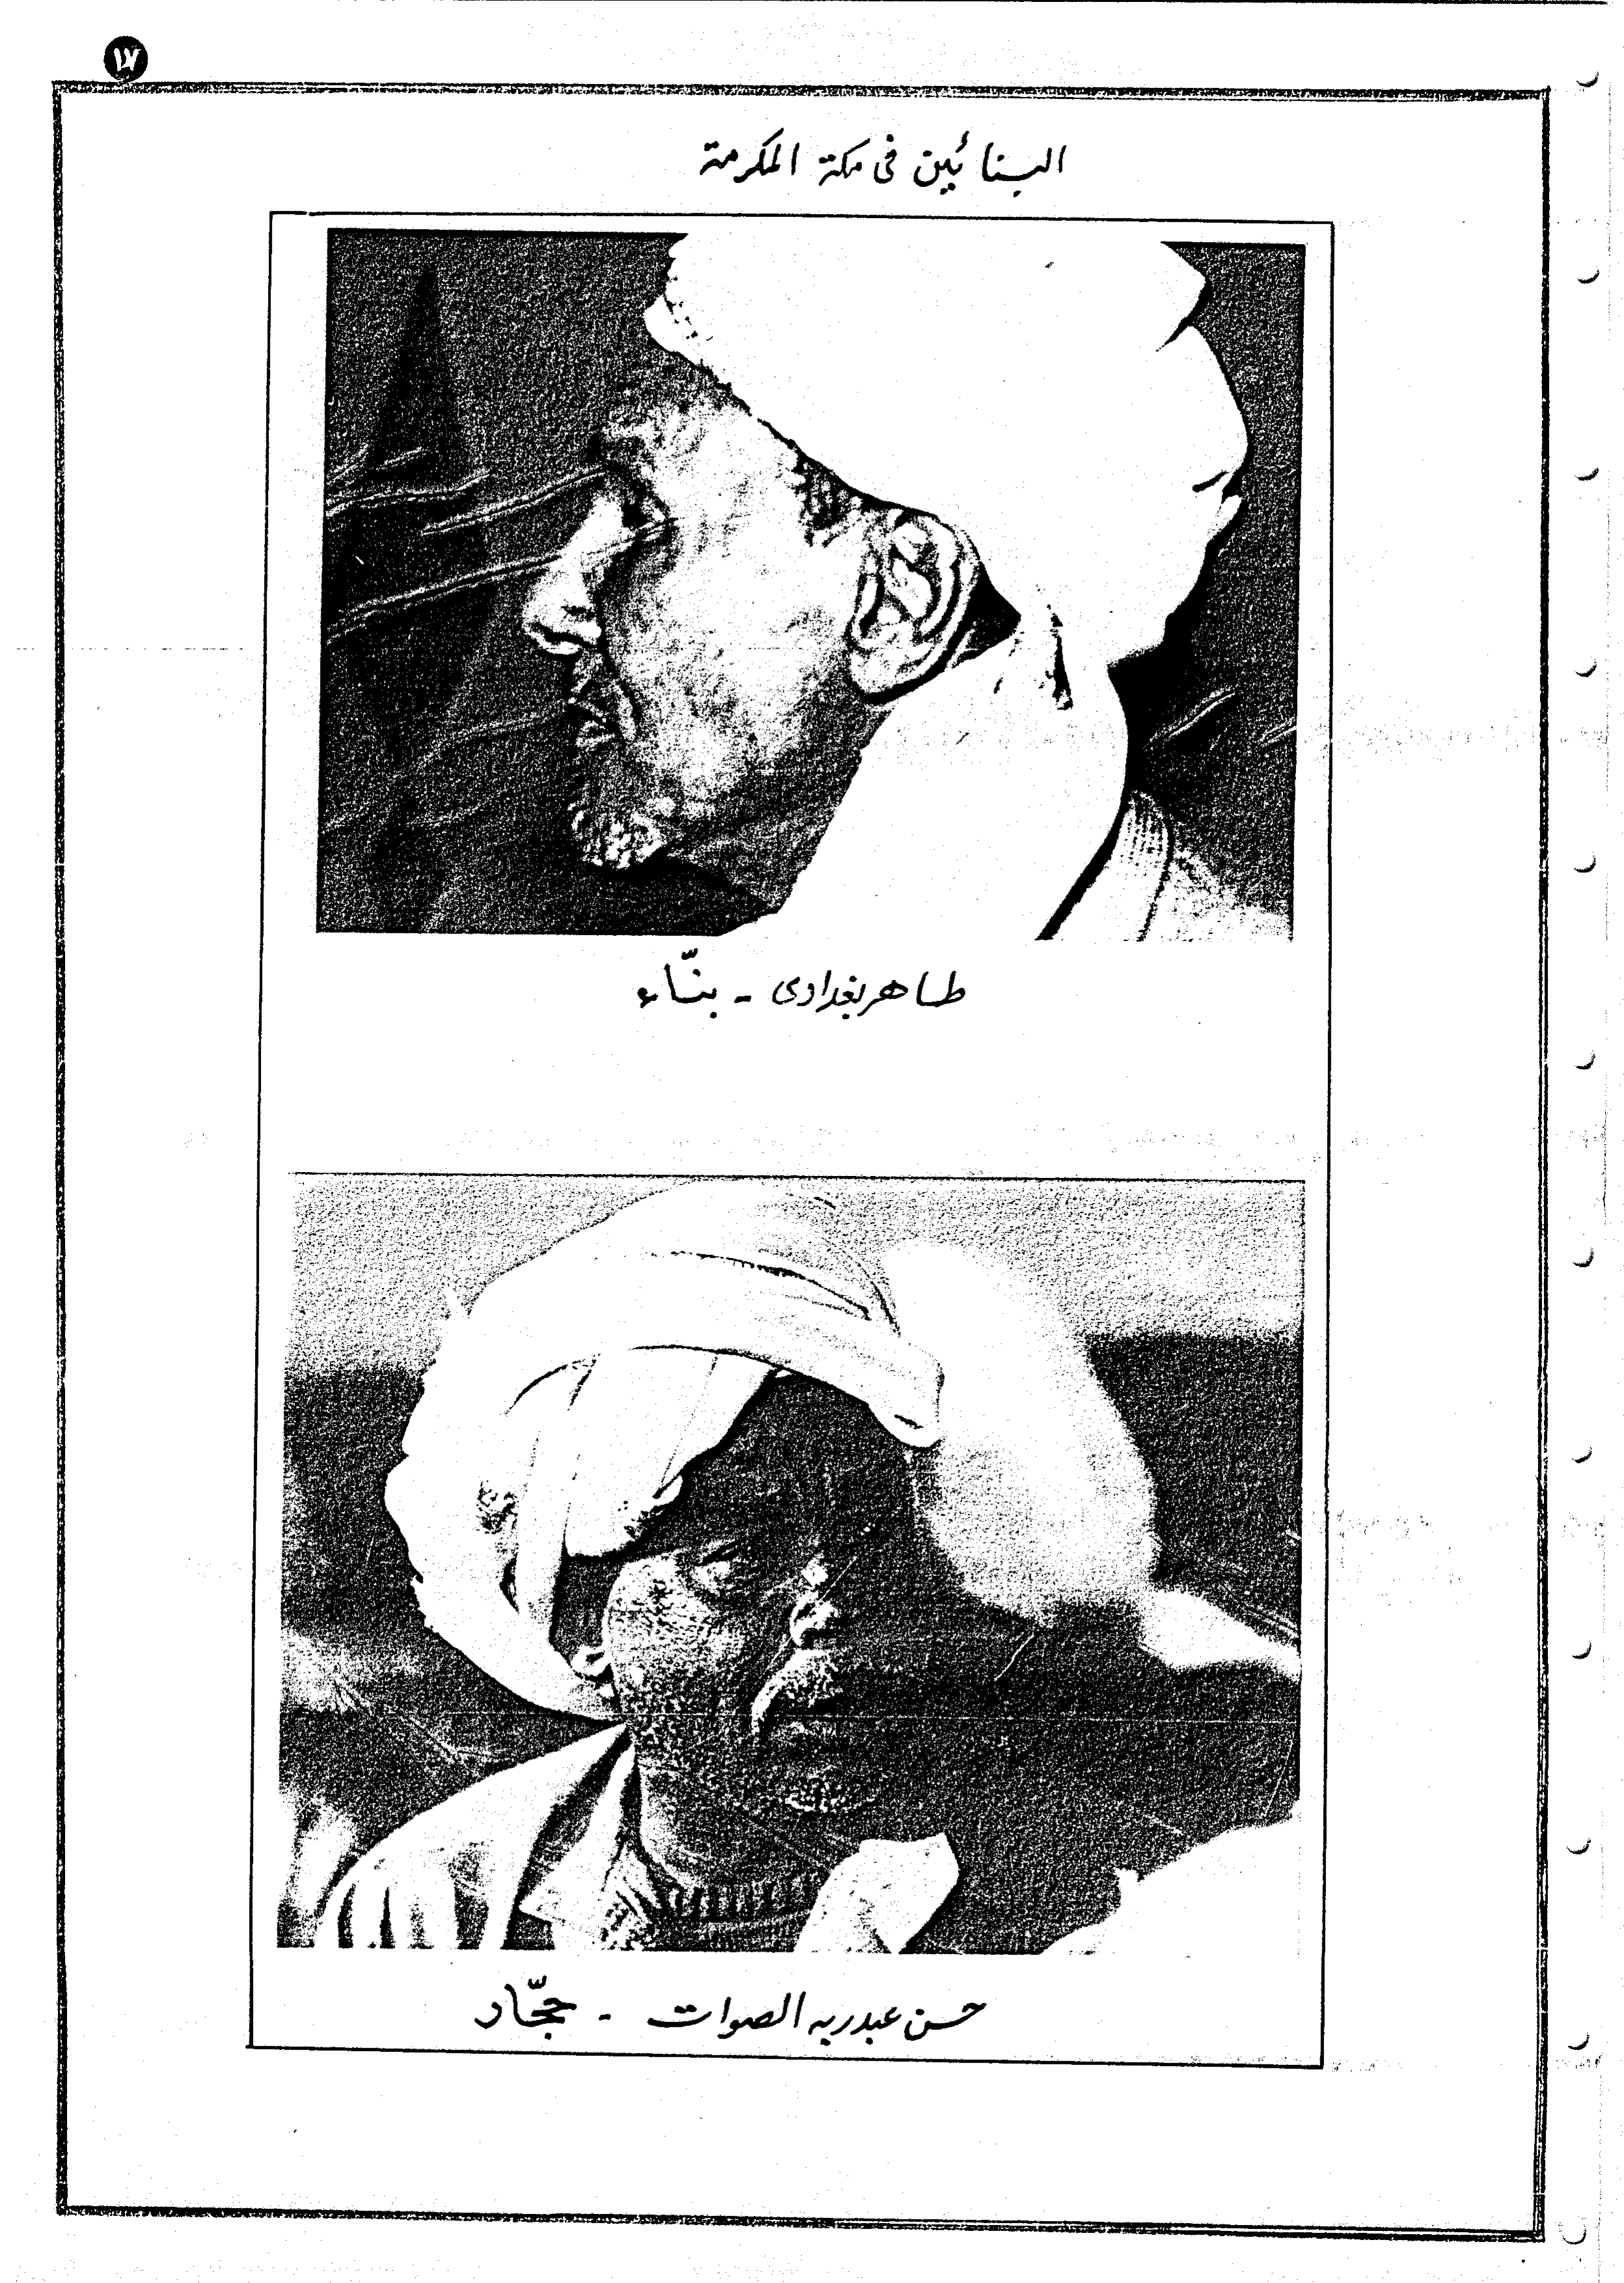 ١٧
البنائين فى مكة المكرمة
طاهر بغدادى - بنّاء
حسن عبدربه الصوات - حجّار